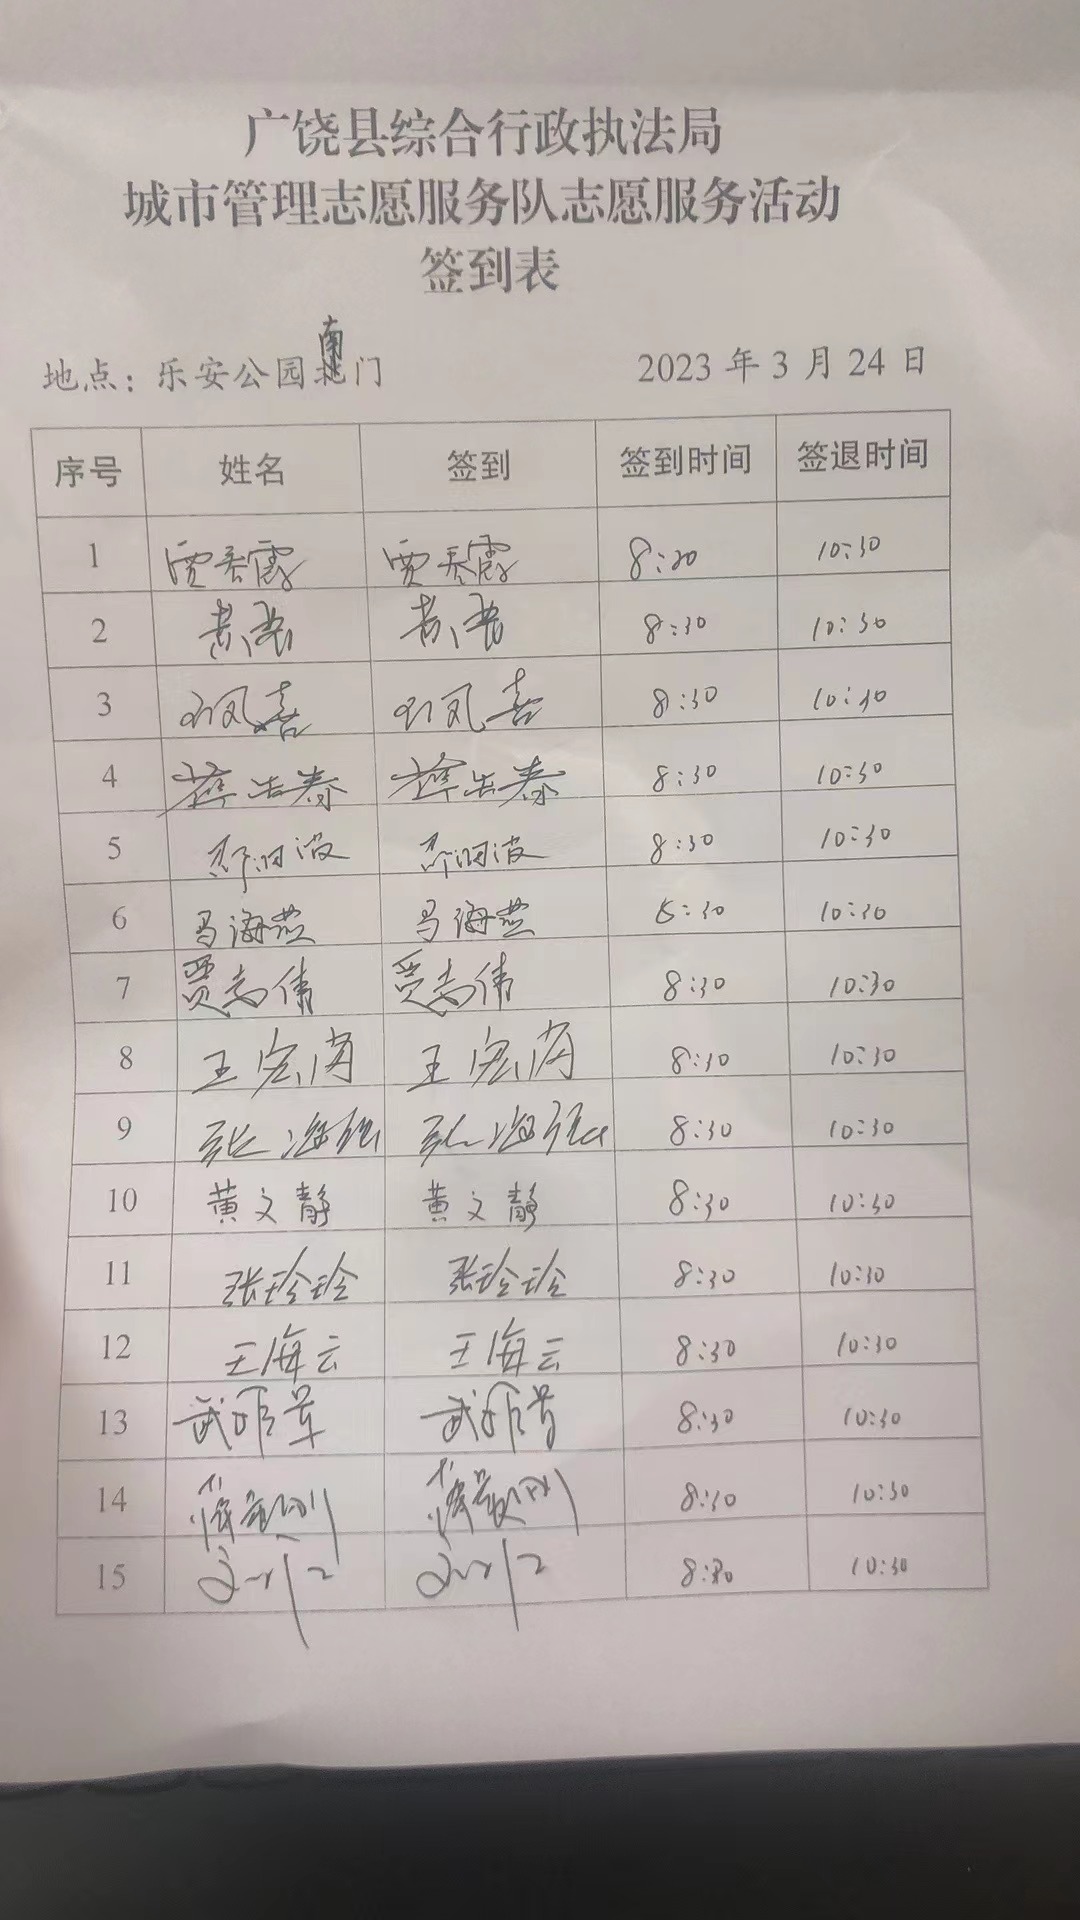 广饶县综合行政执法局
城市管理志愿服务队志愿服务活动
签到表
地点：乐安公园南门 2023年3月24日
序号 姓名 签到 签到时间 签退时间
1 贾春霞 贾春霞 8:30 10:30
2 8:30 10:30
3 凤喜 凤喜 8:30 10:30
4 薛 春 薛 春 8:30 10:30
5 波 波 8:30 10:30
6 马海燕 马海燕 8:30 10:30
7 贾志伟 贾志伟 8:30 10:30
8 王宏 王宏 8:30 10:30
9 张海强 张海强 8:30 10:30
10 黄文静 黄文静 8:30 10:30
11 张玲玲 张玲玲 8:30 10:30
12 王海云 王海云 8:30 10:30
13 武 武 8:30 10:30
14 薛 刚 薛 刚 8:30 10:30
15 8:30 10:30